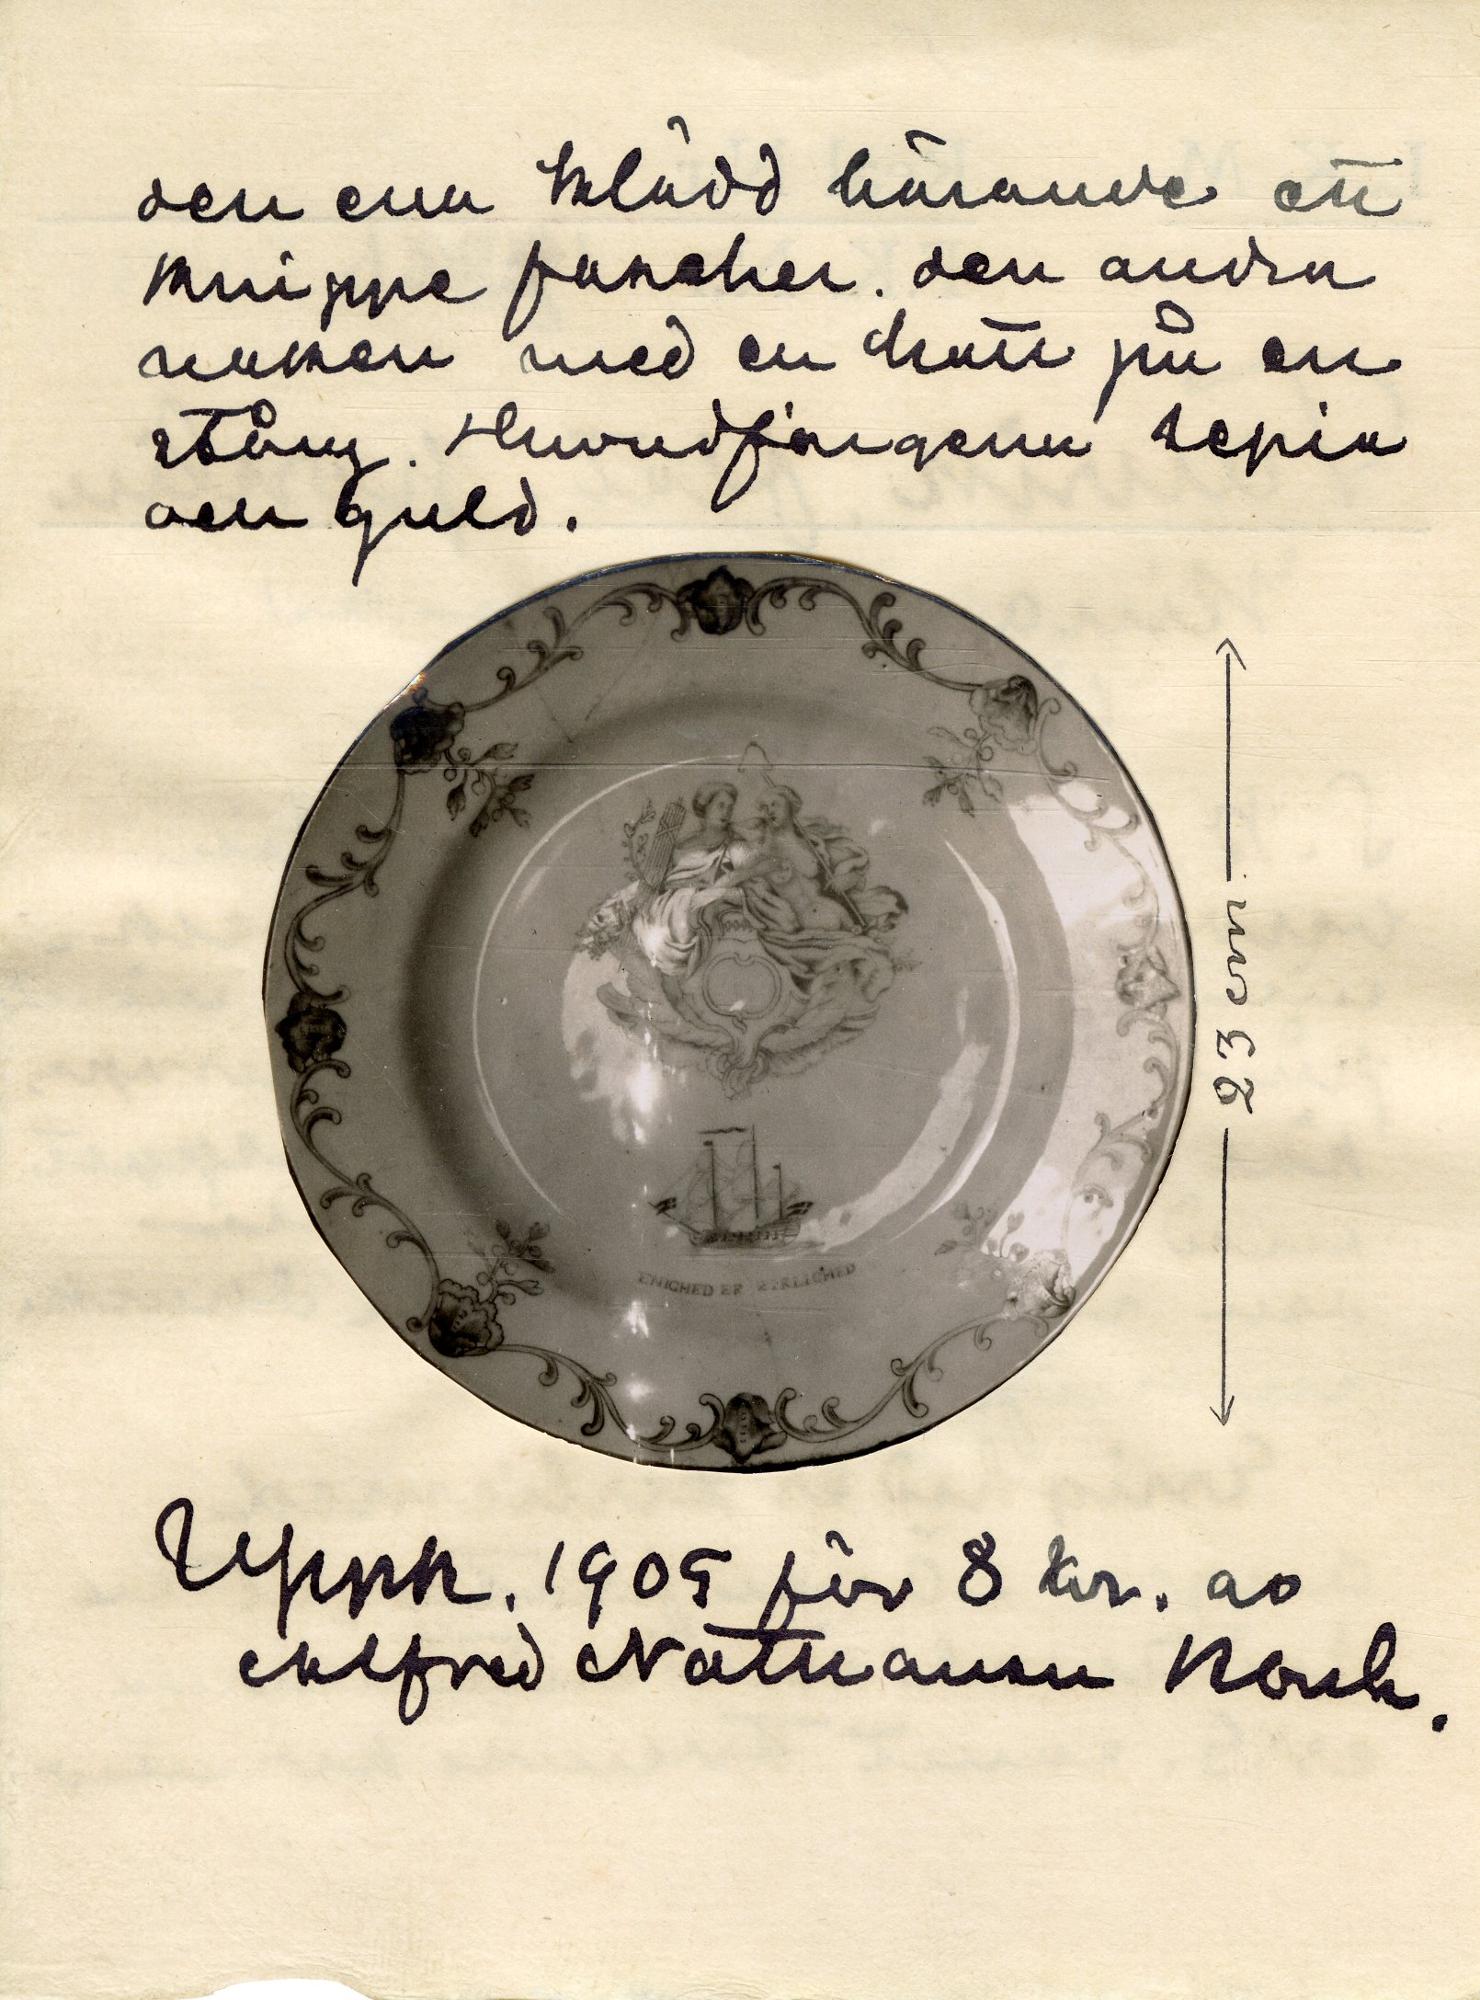 den ena klädd bärande ett
knippe fascher. den andra
naken med en hatt på en
stång. Huvudfärgerna sepia
och guld.
ENIGHED ER
23 cm
Uppk. 1905 för 8 kr. av
Alfred Nathansen Kbnh.